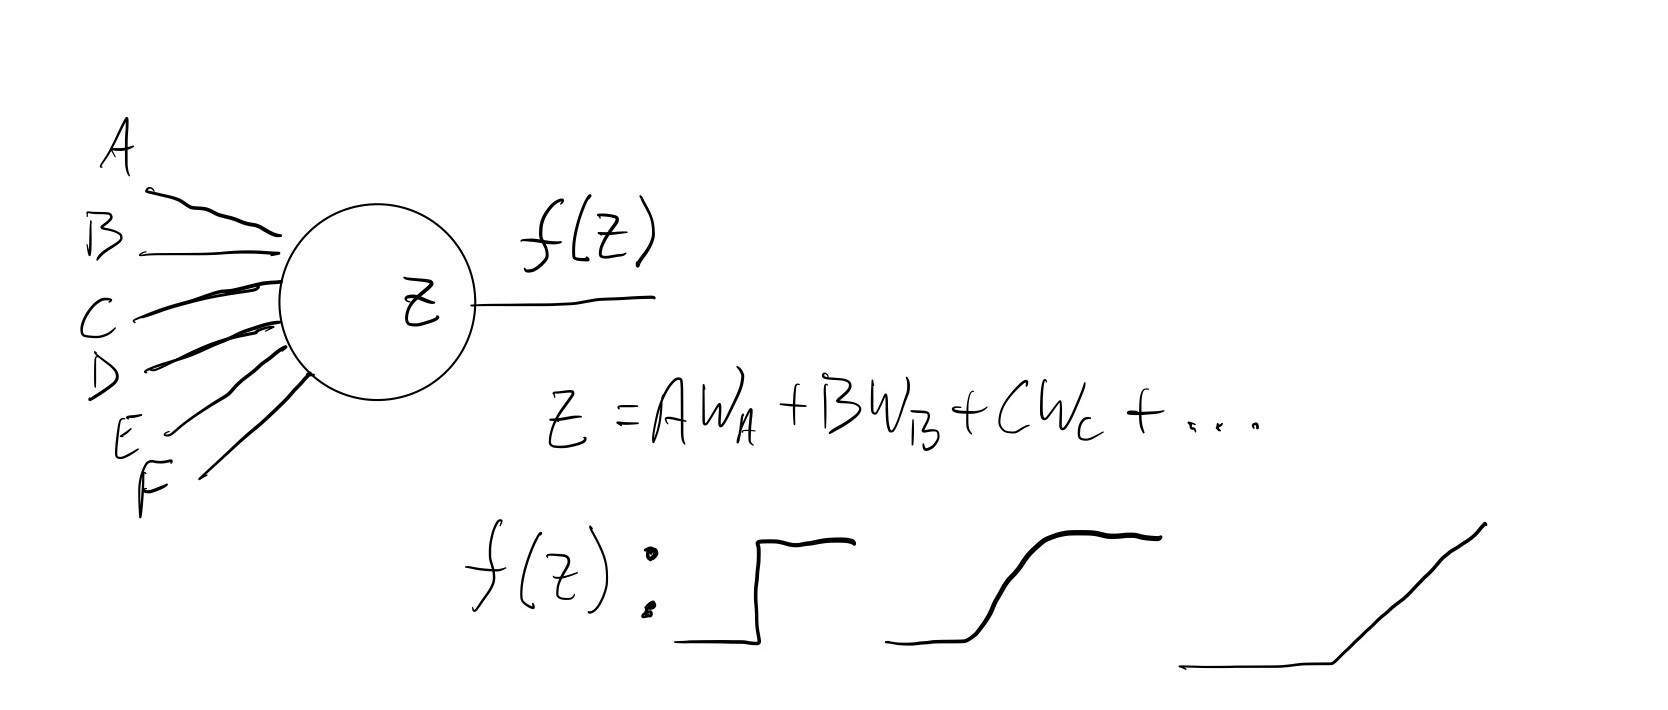 A
B
C
D
E
F
Z
f(Z)
Z = AW_A + BW_B + CW_C + ....
f(z) :